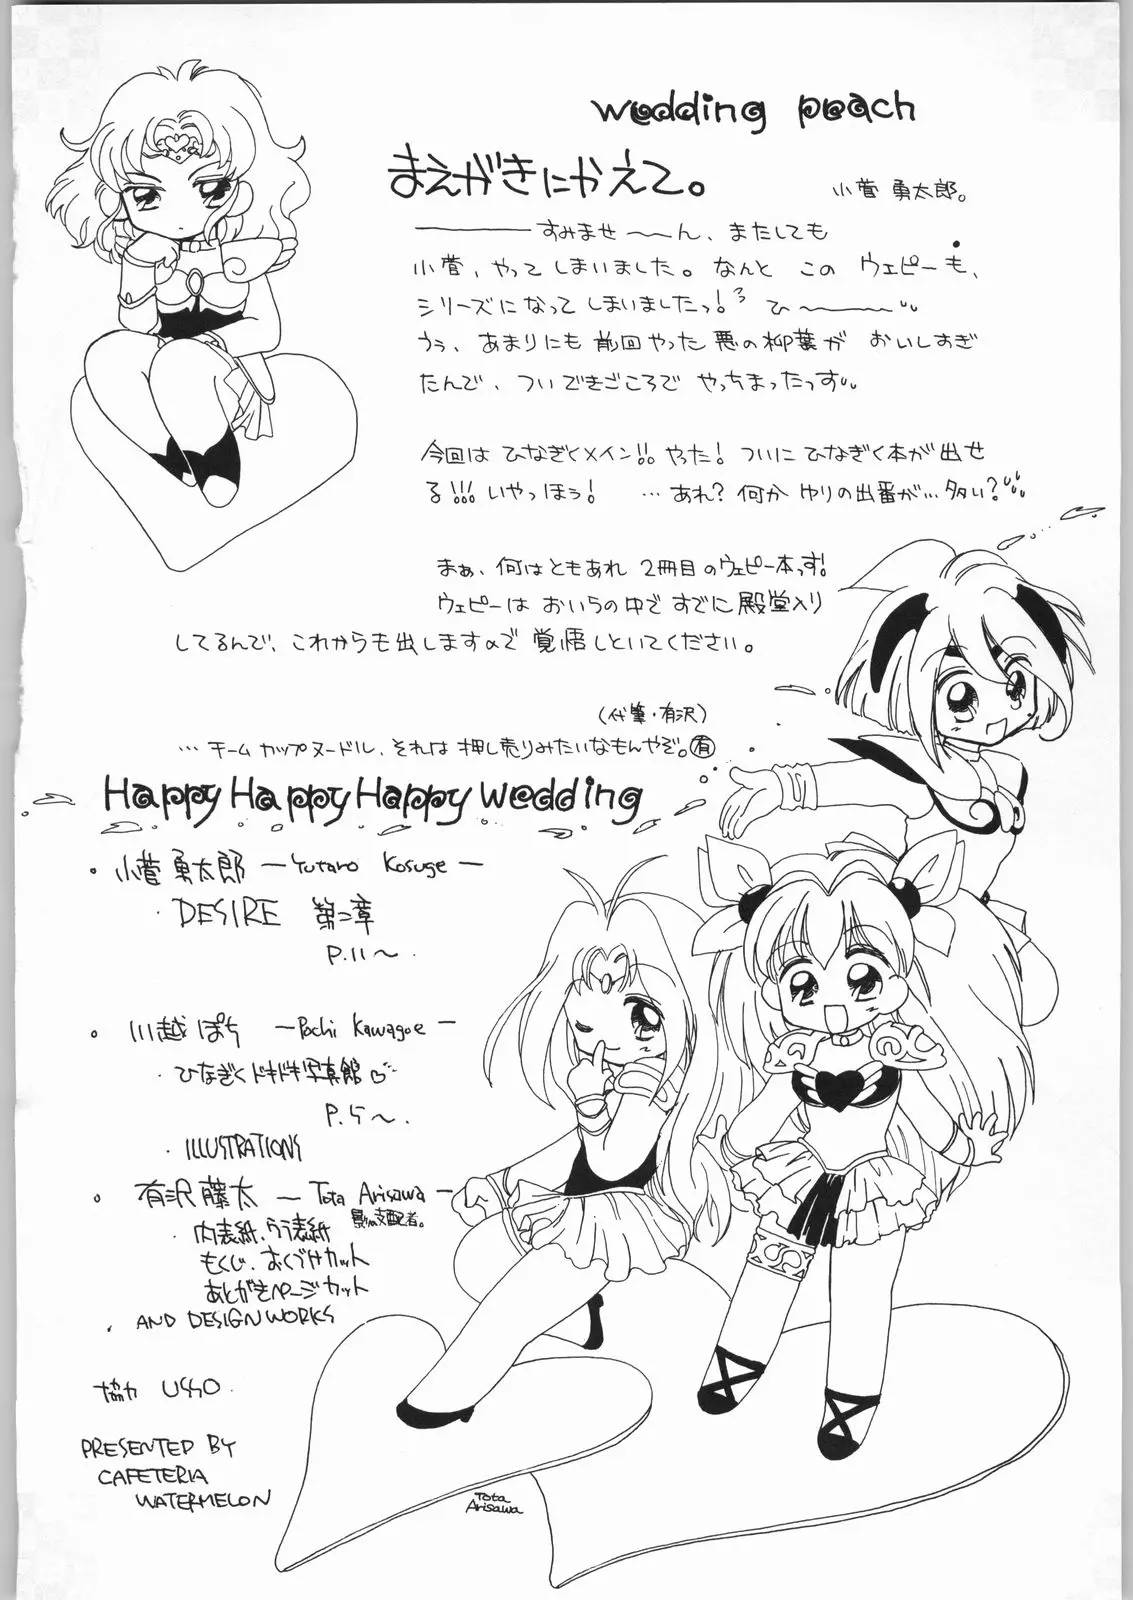 wedding peach
まえがきにかえて。
小菅 勇太郎。
――――すみませ〜〜ん、またしても
小菅、やってしまいました。なんと この ウェピーも、
シリーズになって しまいましたっ! ひ――――
うぅ、あまりにも 前回やった 悪の柳葉が おいしすぎ
たんで、ついできごころで やっちまったっす
今回は ひなぎくメイン!! やった! ついに ひなぎく本が出せ
る!!! いやっほう! … あれ? 何か ゆりの出番が… 多い?
まぁ、何はともあれ 2冊目のウェピー本っす!
ウェピーは おいらの中で すでに殿堂入り
してるんで、これからも出しますので 覚悟しといてください。
(代筆・有沢)
… チーム カップヌードル、それは 押し売りみたいなもんやぞ。㊒
Happy Happy Happy wedding
・小菅 勇太郎 ― Yutaro Kosuge ―
・DESIRE 第二章
P.11〜
・川越 ぽち ― Pochi Kawagoe ―
・ひなぎくドキドキ写真館♡
P.5〜.
・ILLUSTRATIONS
・有沢 藤太 ― Tota Arisawa ―
影の支配者。
・内表紙、ウラ表紙
もくじ、おくづけカット
あとがきページカット
・AND DESIGN WORKS
協力 USSO
PRESENTED BY
CAFETERIA
WATERMELON
Tota
Arisawa